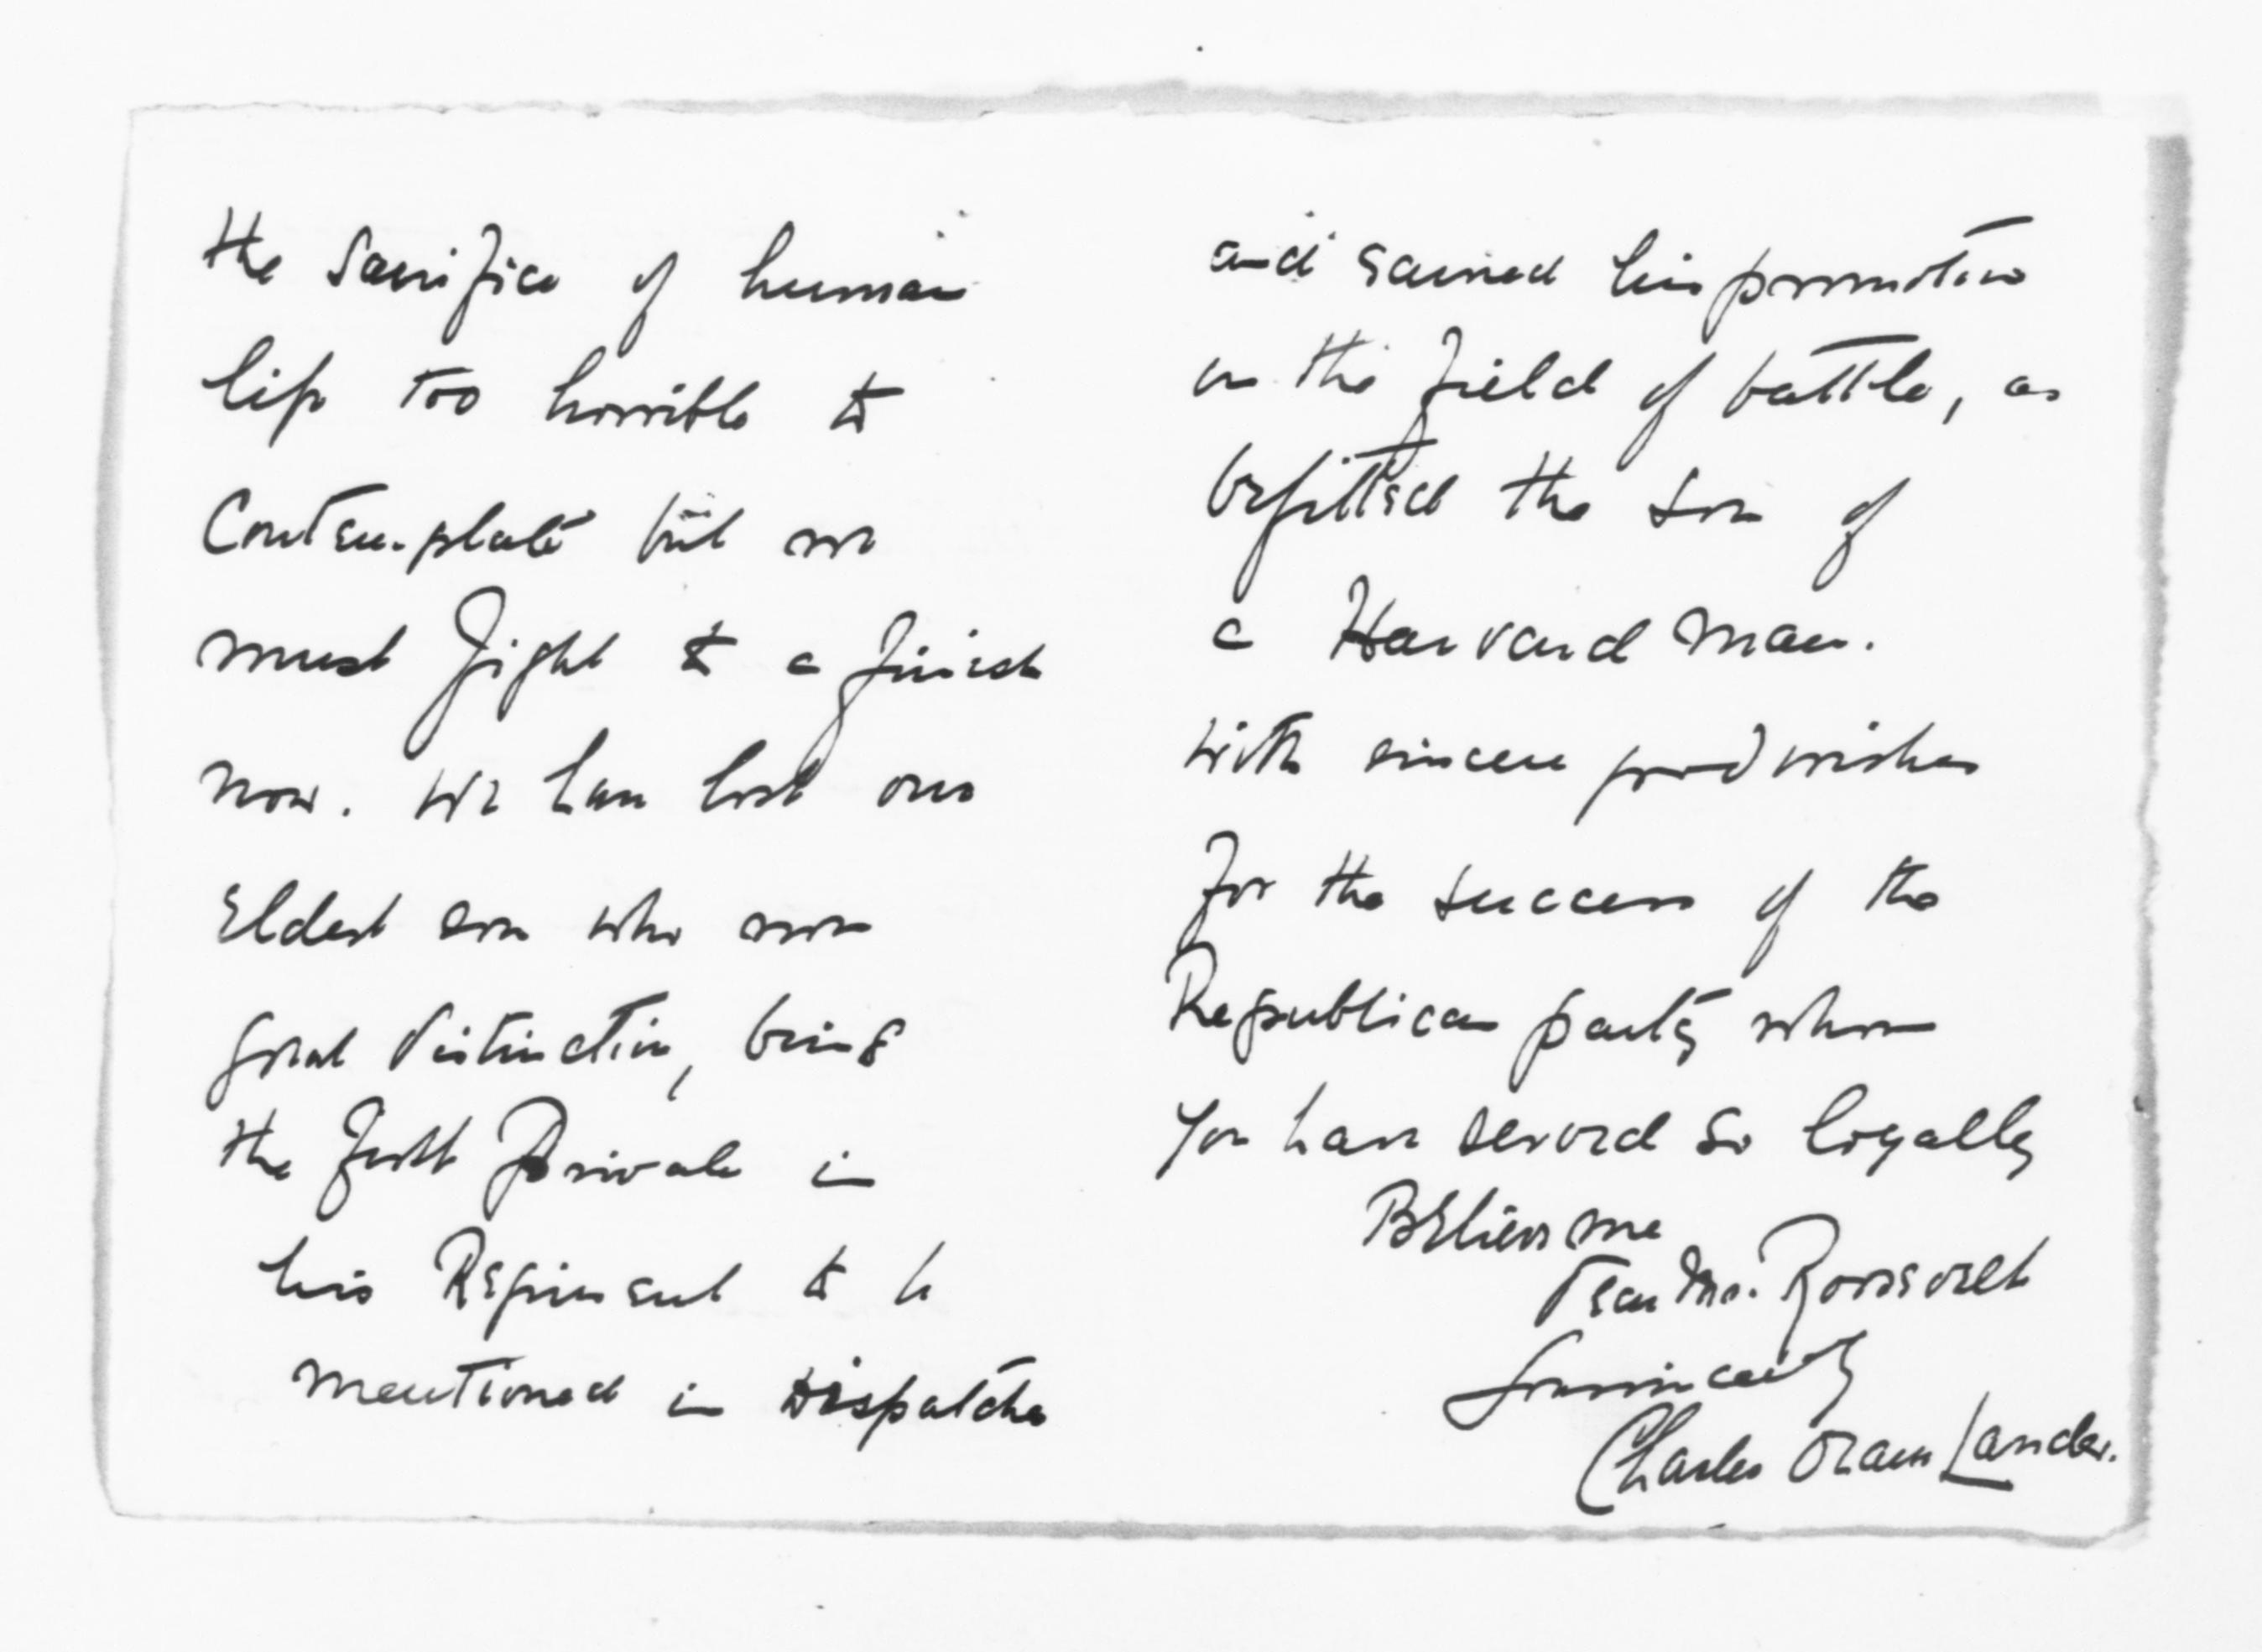 the sacrifice of human
life too horrible to
contemplate but we
must fight to a finish
now. We have lost our
Eldest son who won
great distinction, being
the first Private in
his Regiment to be
mentioned in Dispatches
and gained his promotion
on the field of battle, as
befitted the son of
a Harvard man.
With sincere good wishes
for the success of the
Republican party whom
you have served so loyally
Believe me
Dear Mr. Roosevelt
Charles Oram Lander.